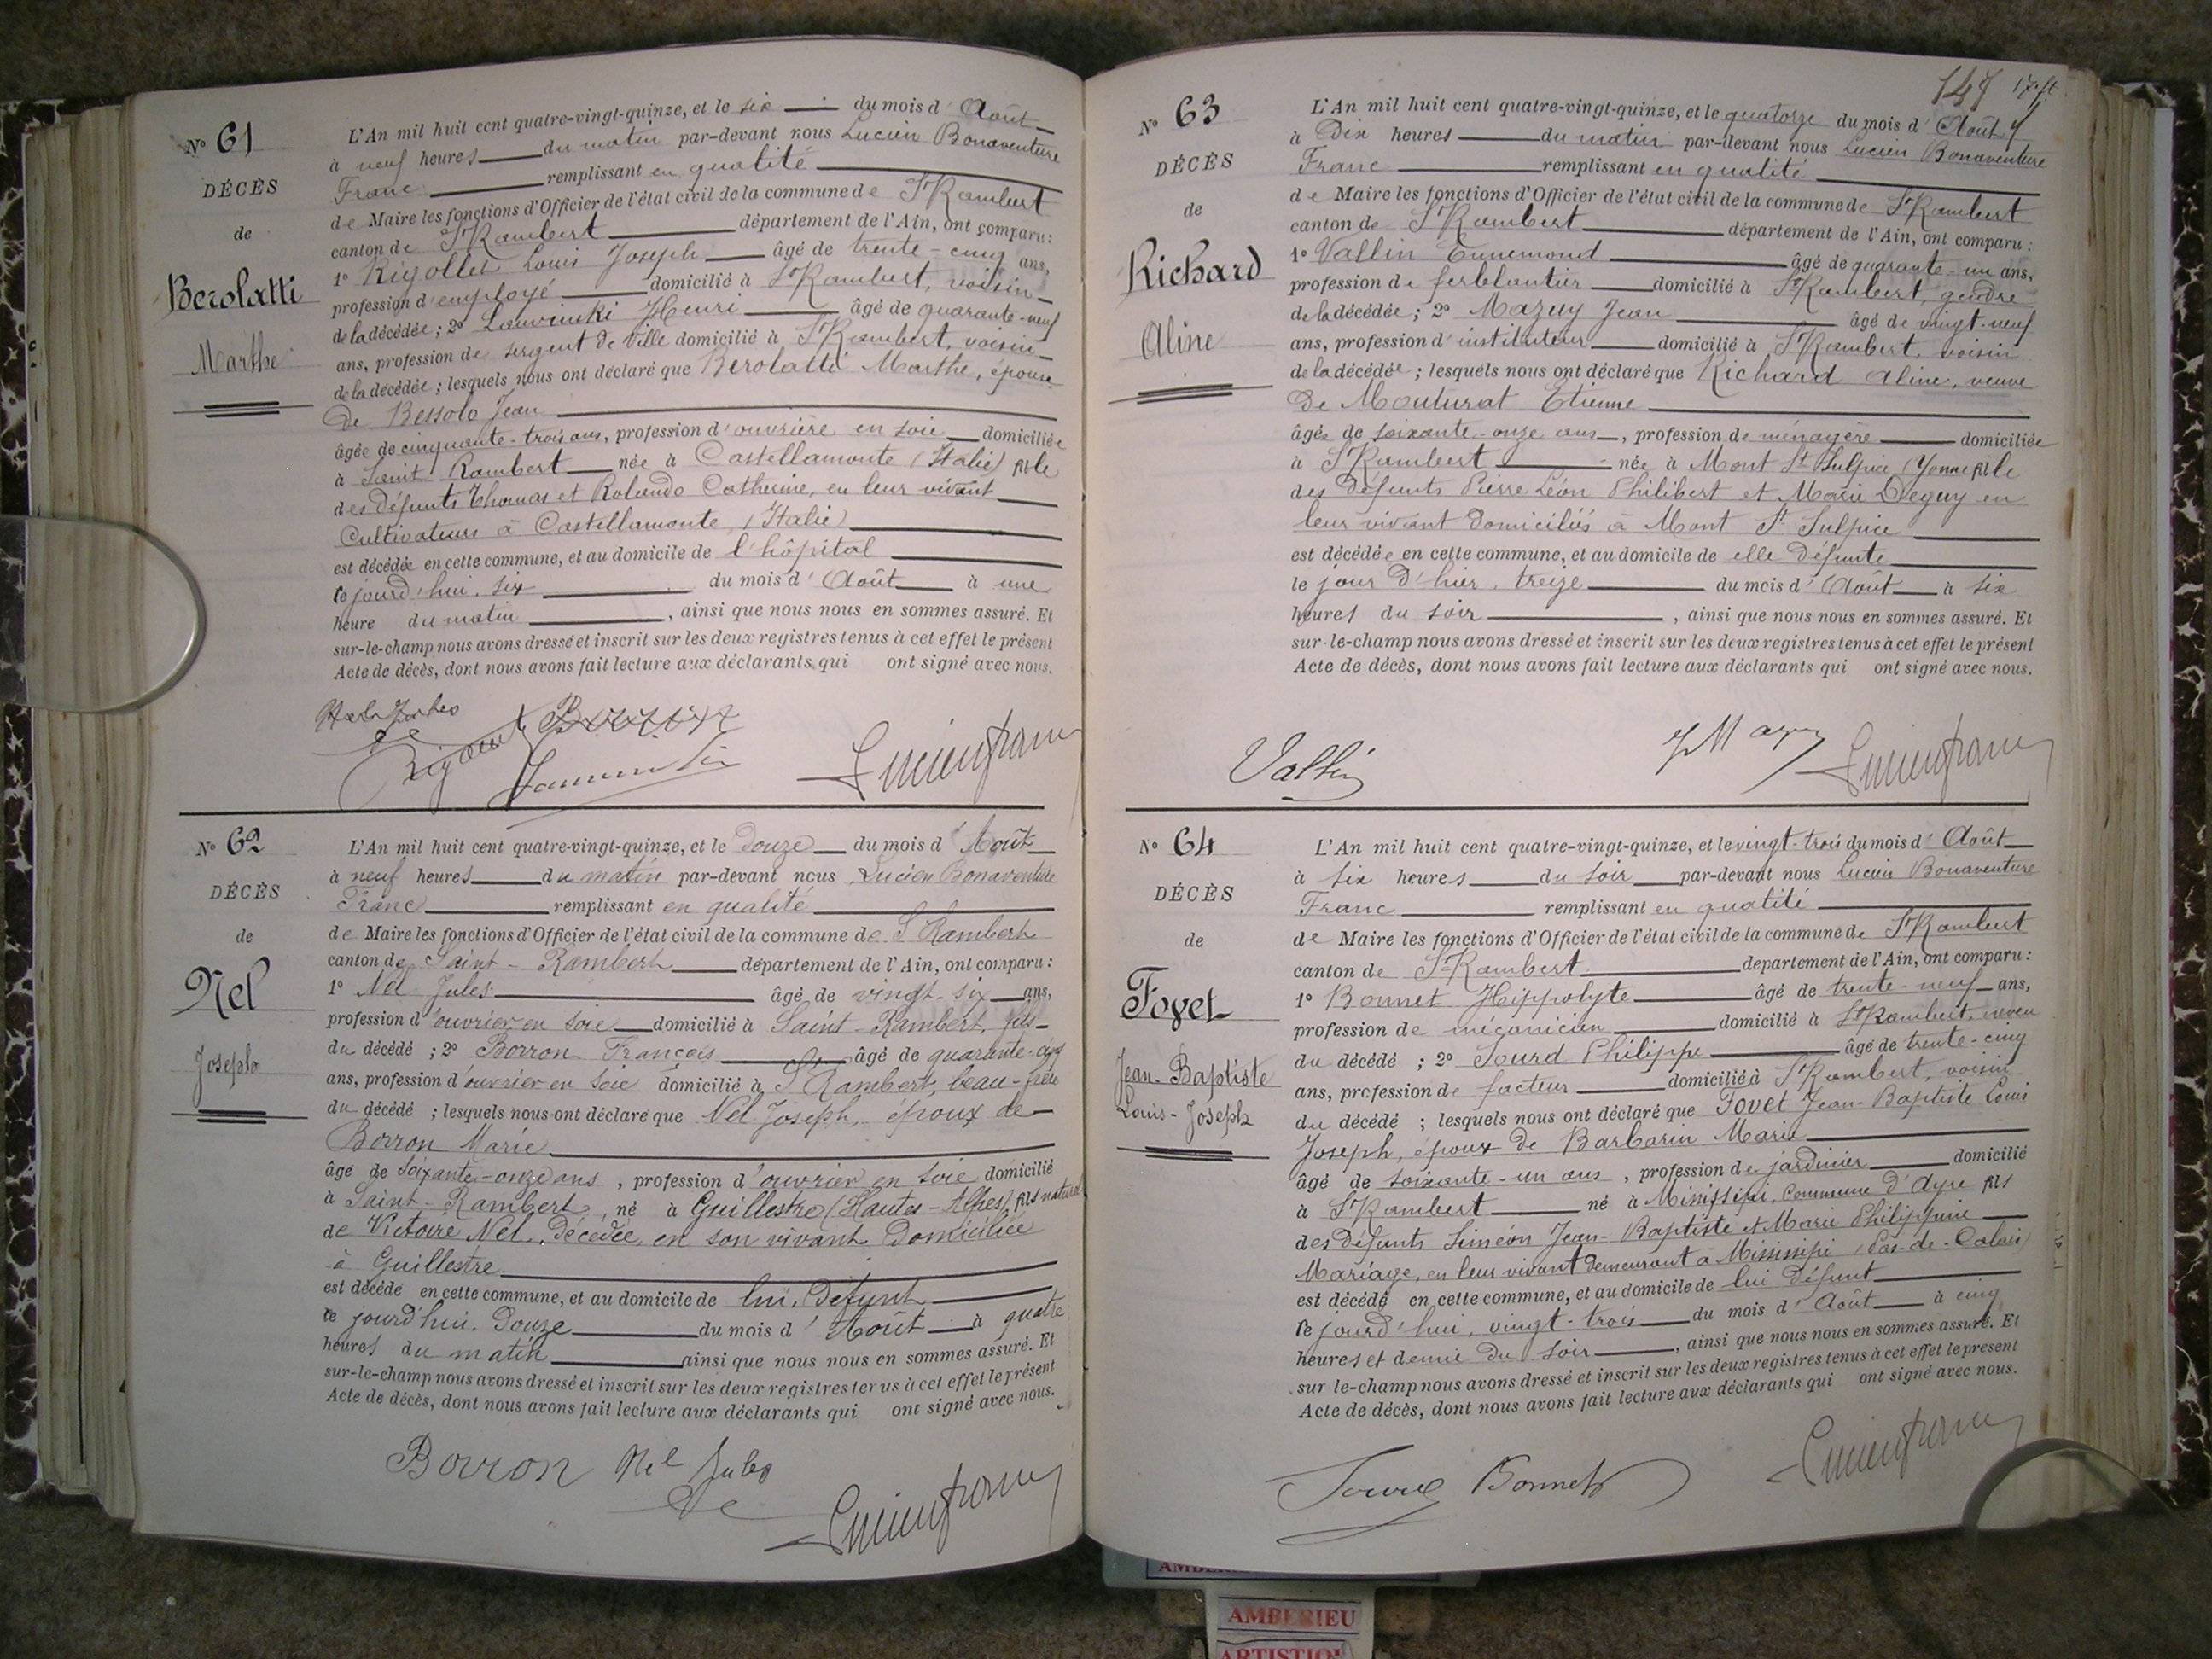 N° 61
DÉCÈS
de
Berolatti
Marthe
L'An mil huit cent quatre-vingt-quinze, et le six du mois d'Août
à neuf heures du matin par-devant nous Lucien Bonaventure
Franc remplissant en qualité
de Maire les fonctions d'Officier de l'état civil de la commune de St Rambert
canton de St Rambert département de l'Ain, ont comparu :
1° Rigollet Louis Joseph âgé de trente-cinq ans,
profession d'employé domicilié à St Rambert, voisin
de la décédée ; 2° Henri âgé de quarante-neuf
ans, profession de sergent de Ville domicilié à St Rambert, voisin
de la décédée ; lesquels nous ont déclaré que Berolatti Marthe, épouse
de Bessolo Jean
âgée de cinquante-trois ans, profession d'ouvrière en soie domiciliée
à Saint Rambert née à Castellamonte (Italie) fille
des défunts Thomas et Rolando Catherine, en leur vivant
Cultivateurs à Castellamonte, (Italie)
est décédée en cette commune, et au domicile de l'hôpital
le jourd'hui, six du mois d'Août à une
heure du matin, ainsi que nous nous en sommes assuré. Et
sur-le-champ nous avons dressé et inscrit sur les deux registres tenus à cet effet le présent
Acte de décès, dont nous avons fait lecture aux déclarants qui ont signé avec nous.
Lucien franc
N° 62
DÉCÈS
de
Nel
Joseph
L'An mil huit cent quatre-vingt-quinze, et le Douze du mois d'Août
à neuf heures du matin par-devant nous Lucien Bonaventure
Franc remplissant en qualité
de Maire les fonctions d'Officier de l'état civil de la commune de St Rambert
canton de Saint-Rambert département de l'Ain, ont comparu :
1° Nel Jules âgé de vingt-six ans,
profession d'ouvrier en soie domicilié à Saint-Rambert, fils
du décédé ; 2° Borron François âgé de quarante-cinq
ans, profession d'ouvrier en soie domicilié à St Rambert, beau-frère
du décédé ; lesquels nous ont déclaré que Nel Joseph, époux de
Borron Marie
âgé de soixante-onze ans, profession d'ouvrier en soie domicilié
à Saint-Rambert, né à Guillestre (Hautes-Alpes), fils naturel
de Victoire Nel, Décédée, en son vivant Domiciliée
à Guillestre
est décédé en cette commune, et au domicile de lui, Défunt
le jourd'hui, Douze du mois d'Août à quatre
heures du matin ainsi que nous nous en sommes assuré. Et
sur-le-champ nous avons dressé et inscrit sur les deux registres tenus à cet effet le présent
Acte de décès, dont nous avons fait lecture aux déclarants qui ont signé avec nous.
Borron Nel Jules
Lucien franc
147
N° 63
DÉCÈS
de
Richard
Aline
L'An mil huit cent quatre-vingt-quinze, et le quatorze du mois d'Août
à Dix heures du matin par-devant nous Lucien Bonaventure
Franc remplissant en qualité
de Maire les fonctions d'Officier de l'état civil de la commune de St Rambert
canton de St Rambert département de l'Ain, ont comparu :
1° Vallin Ennemond âgé de quarante-un ans,
profession de ferblantier domicilié à St Rambert, gendre
de la décédée ; 2° Mazuy Jean âgé de vingt-neuf
ans, profession d'instituteur domicilié à St Rambert, voisin
de la décédée ; lesquels nous ont déclaré que Richard Aline, veuve
de Mouturat Etienne
âgée de soixante-onze ans, profession de ménagère domiciliée
à St Rambert née à Mont St Sulpice (Yonne) fille
des défunts Pierre Léon Philibert et Marie Deguy en
leur vivant domiciliés à Mont St Sulpice
est décédée en cette commune, et au domicile de elle défunte
le jour d'hier, treize du mois d'Août à six
heures du soir, ainsi que nous nous en sommes assuré. Et
sur-le-champ nous avons dressé et inscrit sur les deux registres tenus à cet effet le présent
Acte de décès, dont nous avons fait lecture aux déclarants qui ont signé avec nous.
Vallin Lucien franc
N° 64
DÉCÈS
de
Fovet
Jean-Baptiste
Louis-Joseph
L'An mil huit cent quatre-vingt-quinze, et le vingt-trois du mois d'Août
à six heures du soir par-devant nous Lucien Bonaventure
Franc remplissant en qualité
de Maire les fonctions d'Officier de l'état civil de la commune de St Rambert
canton de St Rambert département de l'Ain, ont comparu :
1° Bonnet Hippolyte âgé de trente-neuf ans,
profession de mécanicien domicilié à St Rambert, neveu
du décédé ; 2° Sourd Philippe âgé de trente-cinq
ans, profession de facteur domicilié à St Rambert, voisin
du décédé ; lesquels nous ont déclaré que Fovet Jean-Baptiste Louis
Joseph, époux de Barbarin Marie
âgé de soixante-un ans, profession de jardinier domicilié
à St Rambert né à Minissipi, commune d'Ayre fils
des défunts Siméon Jean-Baptiste et Marie Philippine
Mariage, en leur vivant demeurant à Minissipi (Pas-de-Calais)
est décédé en cette commune, et au domicile de lui défunt
le jourd'hui, vingt-trois du mois d'Août à cinq
heures et demie du soir, ainsi que nous nous en sommes assuré. Et
sur le-champ nous avons dressé et inscrit sur les deux registres tenus à cet effet le présent
Acte de décès, dont nous avons fait lecture aux déclarants qui ont signé avec nous.
Sourd Bonnet Lucien franc
AMBERIEU